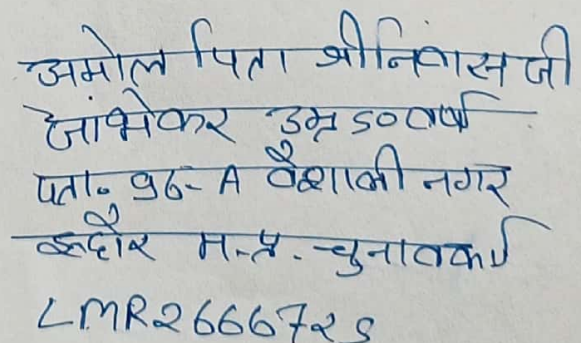 अमोल पिता श्रीनिवास जी
जांभेकर उम्र 50 वर्ष
पता. 96-A वैशाली नगर
इन्दौर म.प्र. चुनाव कार्ड
LMR2666725